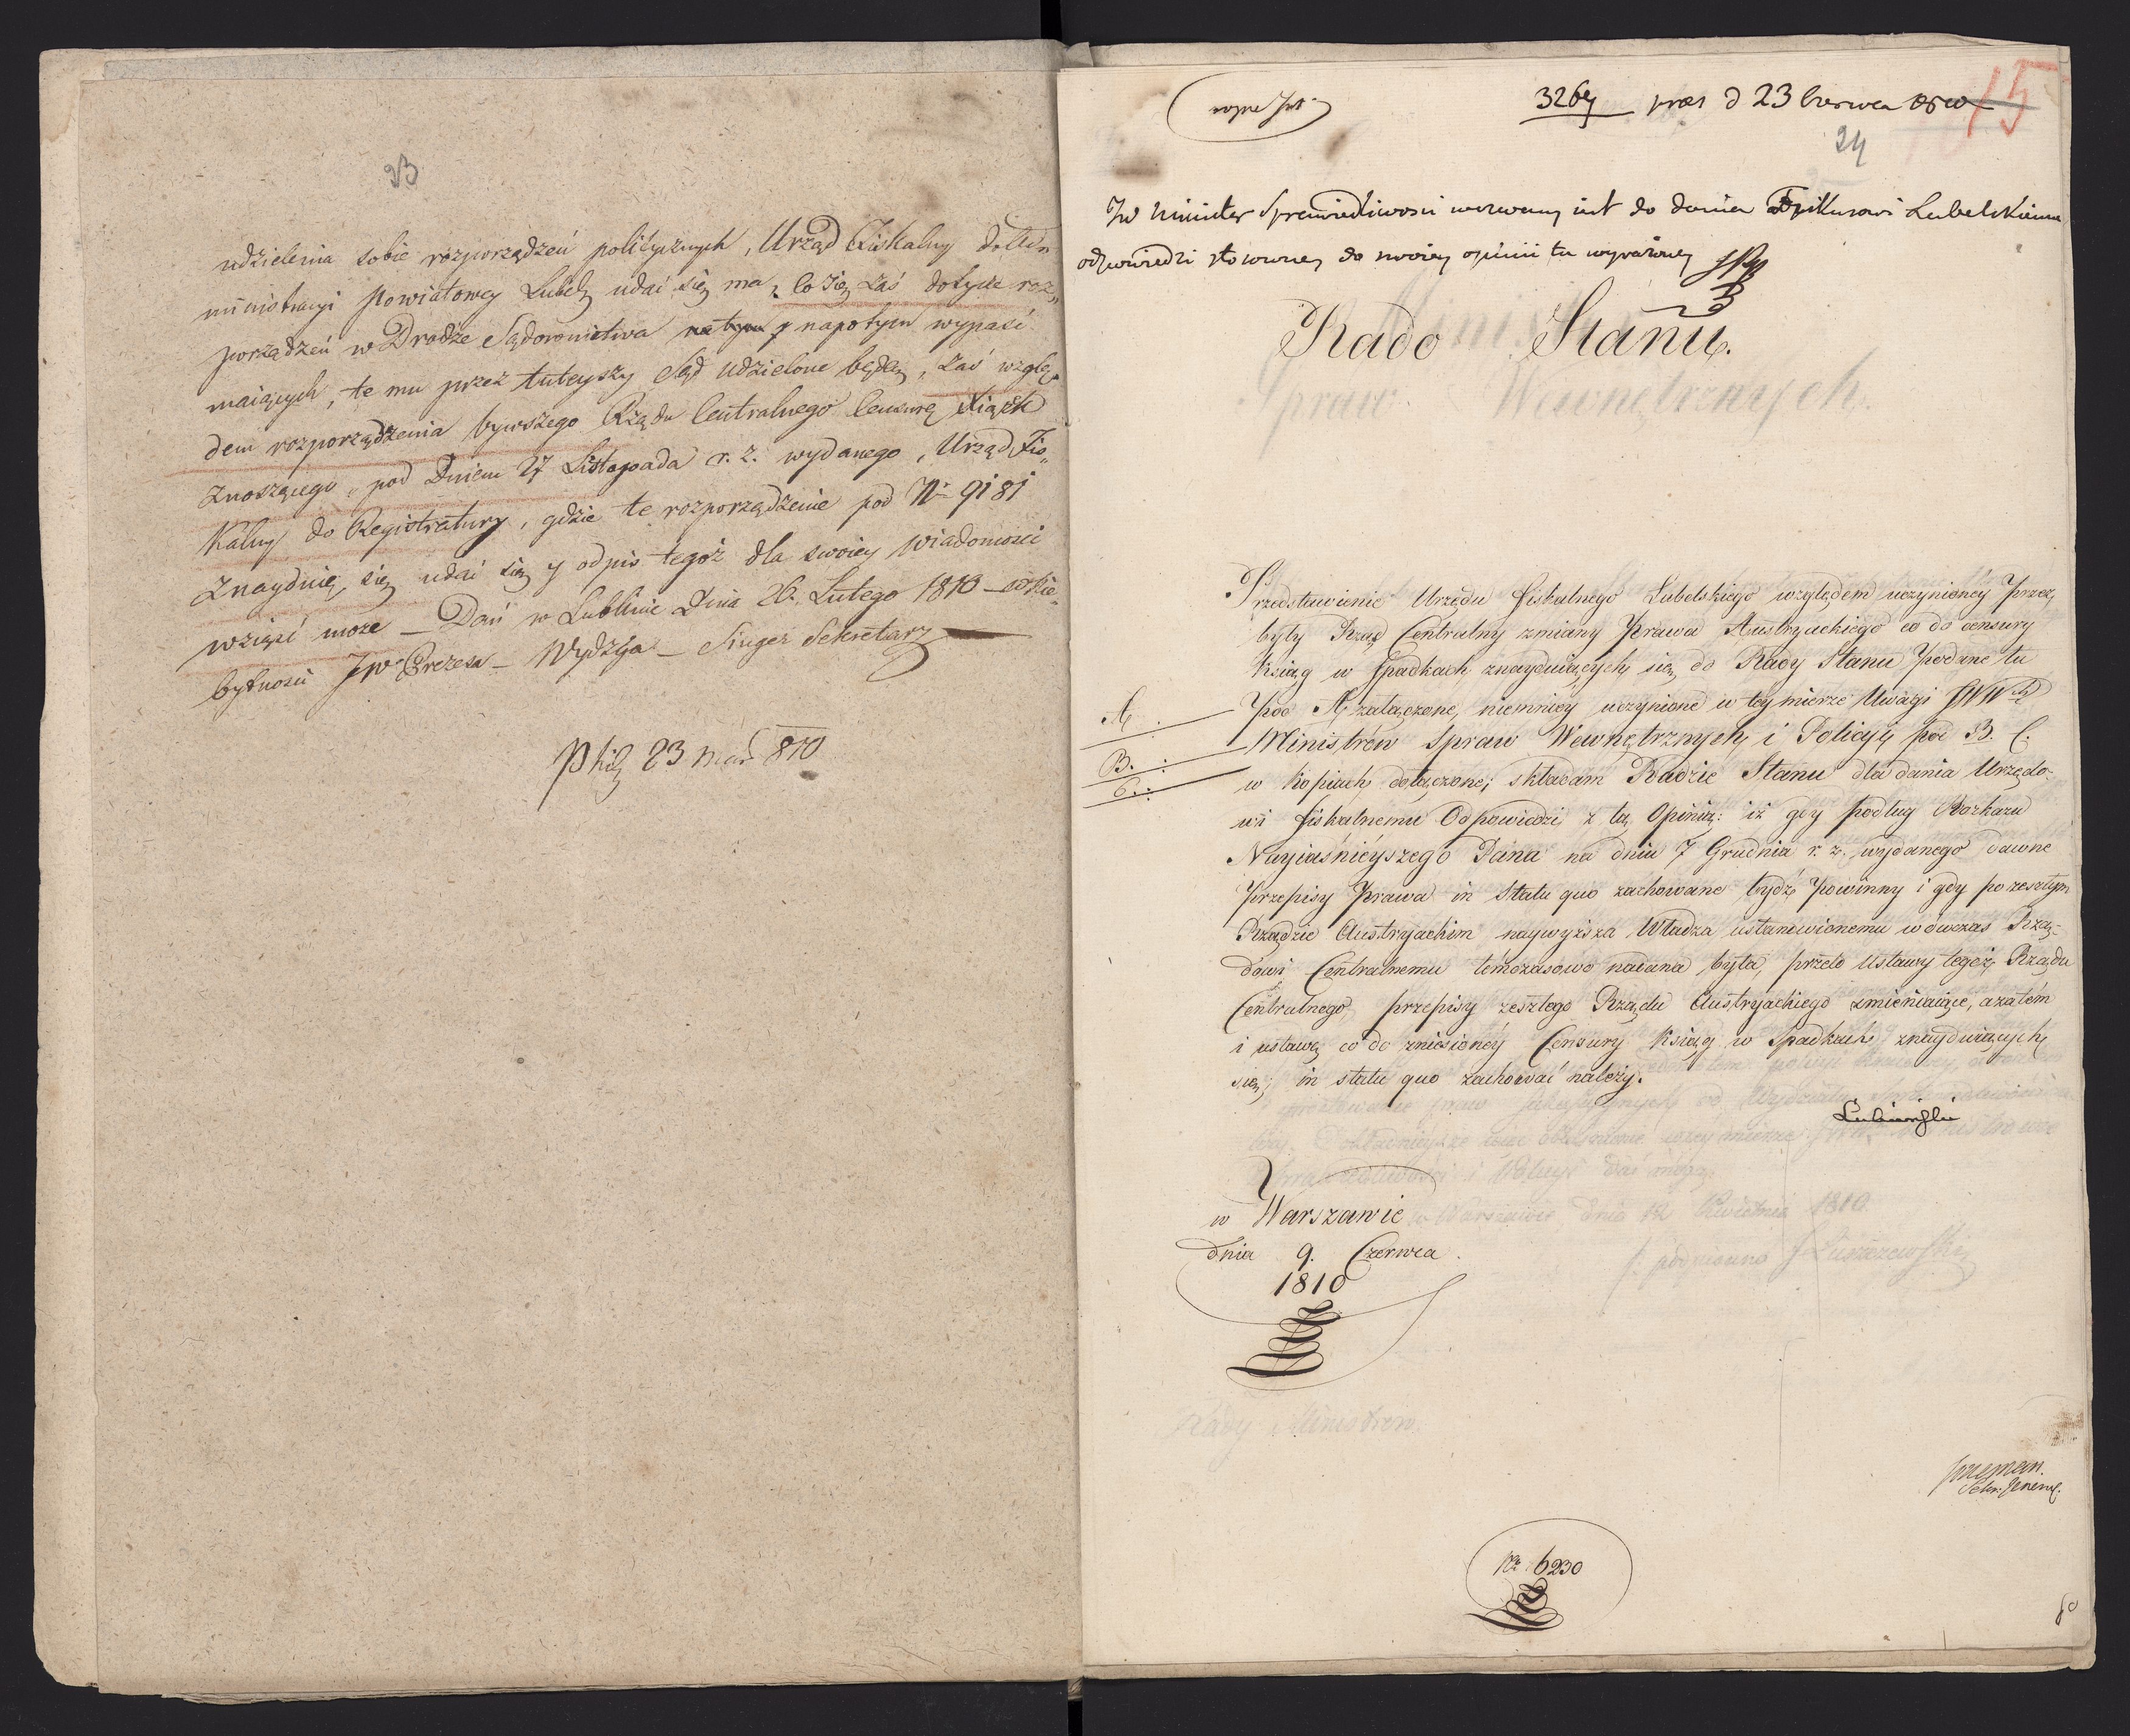 23
udzielenia sobie rozporządzeń politycznych, Urząd Fiskalny do Adm
ministracyi Powiatowey Lubel: udać się ma, co się zaś dotycze roz„
porządzeń w Drodze Sądownictwa na tym y napotym wypaść
maiących, te mu przez tuteyszy Sąd udzielone będą, zaś wzglę„
dem rozporządzenia bywszego Rządu Centralnego Censurę Xiążek
Znoszącego, pod Dniem 27 Listopada r. z. wydanego, Urząd Fis„
Kalny do Registratury, gdzie te rozporządzenie pod Nr 9181
Znayduie się, udać się y odpis tegoż dla swoiey wiadomości
wziąść może – Dań w Lublinie Dnia 26. Lutego 1810 – w nie„
bytności JW Prezesa – Wydżga – Singer Sekretarz
23 Mar 810
3267 pres d 23 Czerwca 15
24
JW Minister Sprawiedliwości wezwany iest do dania Fiskusowi Lubelskiemu
odpowiedzi stosownej do swoiey opinii tu wyrażoney
Rado Stanu.
Przedstawienie Urzędu Fiskalnego Lubelskiego względem uczynioney przez
były Rząd Centralny zmiany Prawa Austryackiego co do censury
Ksiąg w Spadkach znayduiących się, do Rady Stanu podane tu
A. pod A. załączone, niemniey uczynione w tey mierze Uwagi JWWch
B. Ministrów Spraw Wewnętrznych i Policyi pod B. C.
C. w kopiach dołączone; składam Radzie Stanu dla dania Urzędo-
wi Fiskalnemu Odpowiedzi z tą Opinią: iż gdy podług Rozkazu
Nayiaśnieyszego Pana na dniu 7 Grudnia r. z. wydanego dawne
przepisy Prawa in Statu quo zachowane bydź powinny i gdy po zeszłym
Rządzie Austryackim naywyższa Władza ustanowionemu wówczas Rzą-
dowi Centralnemu tymczasowo nadana była, przeto Ustawy tegoż Rządu
Centralnego, przepisy zeszłego Rządu Austryackiego zmieniaiące, a zatem
i ustawę co do zniesioney Censury Ksiąg w Spadkach znayduiących
się; in statu quo zachować należy.
Łubieński
w Warszawie
dnia 9. Czerwca
1810
Sekr. Jener.
Nr 6230